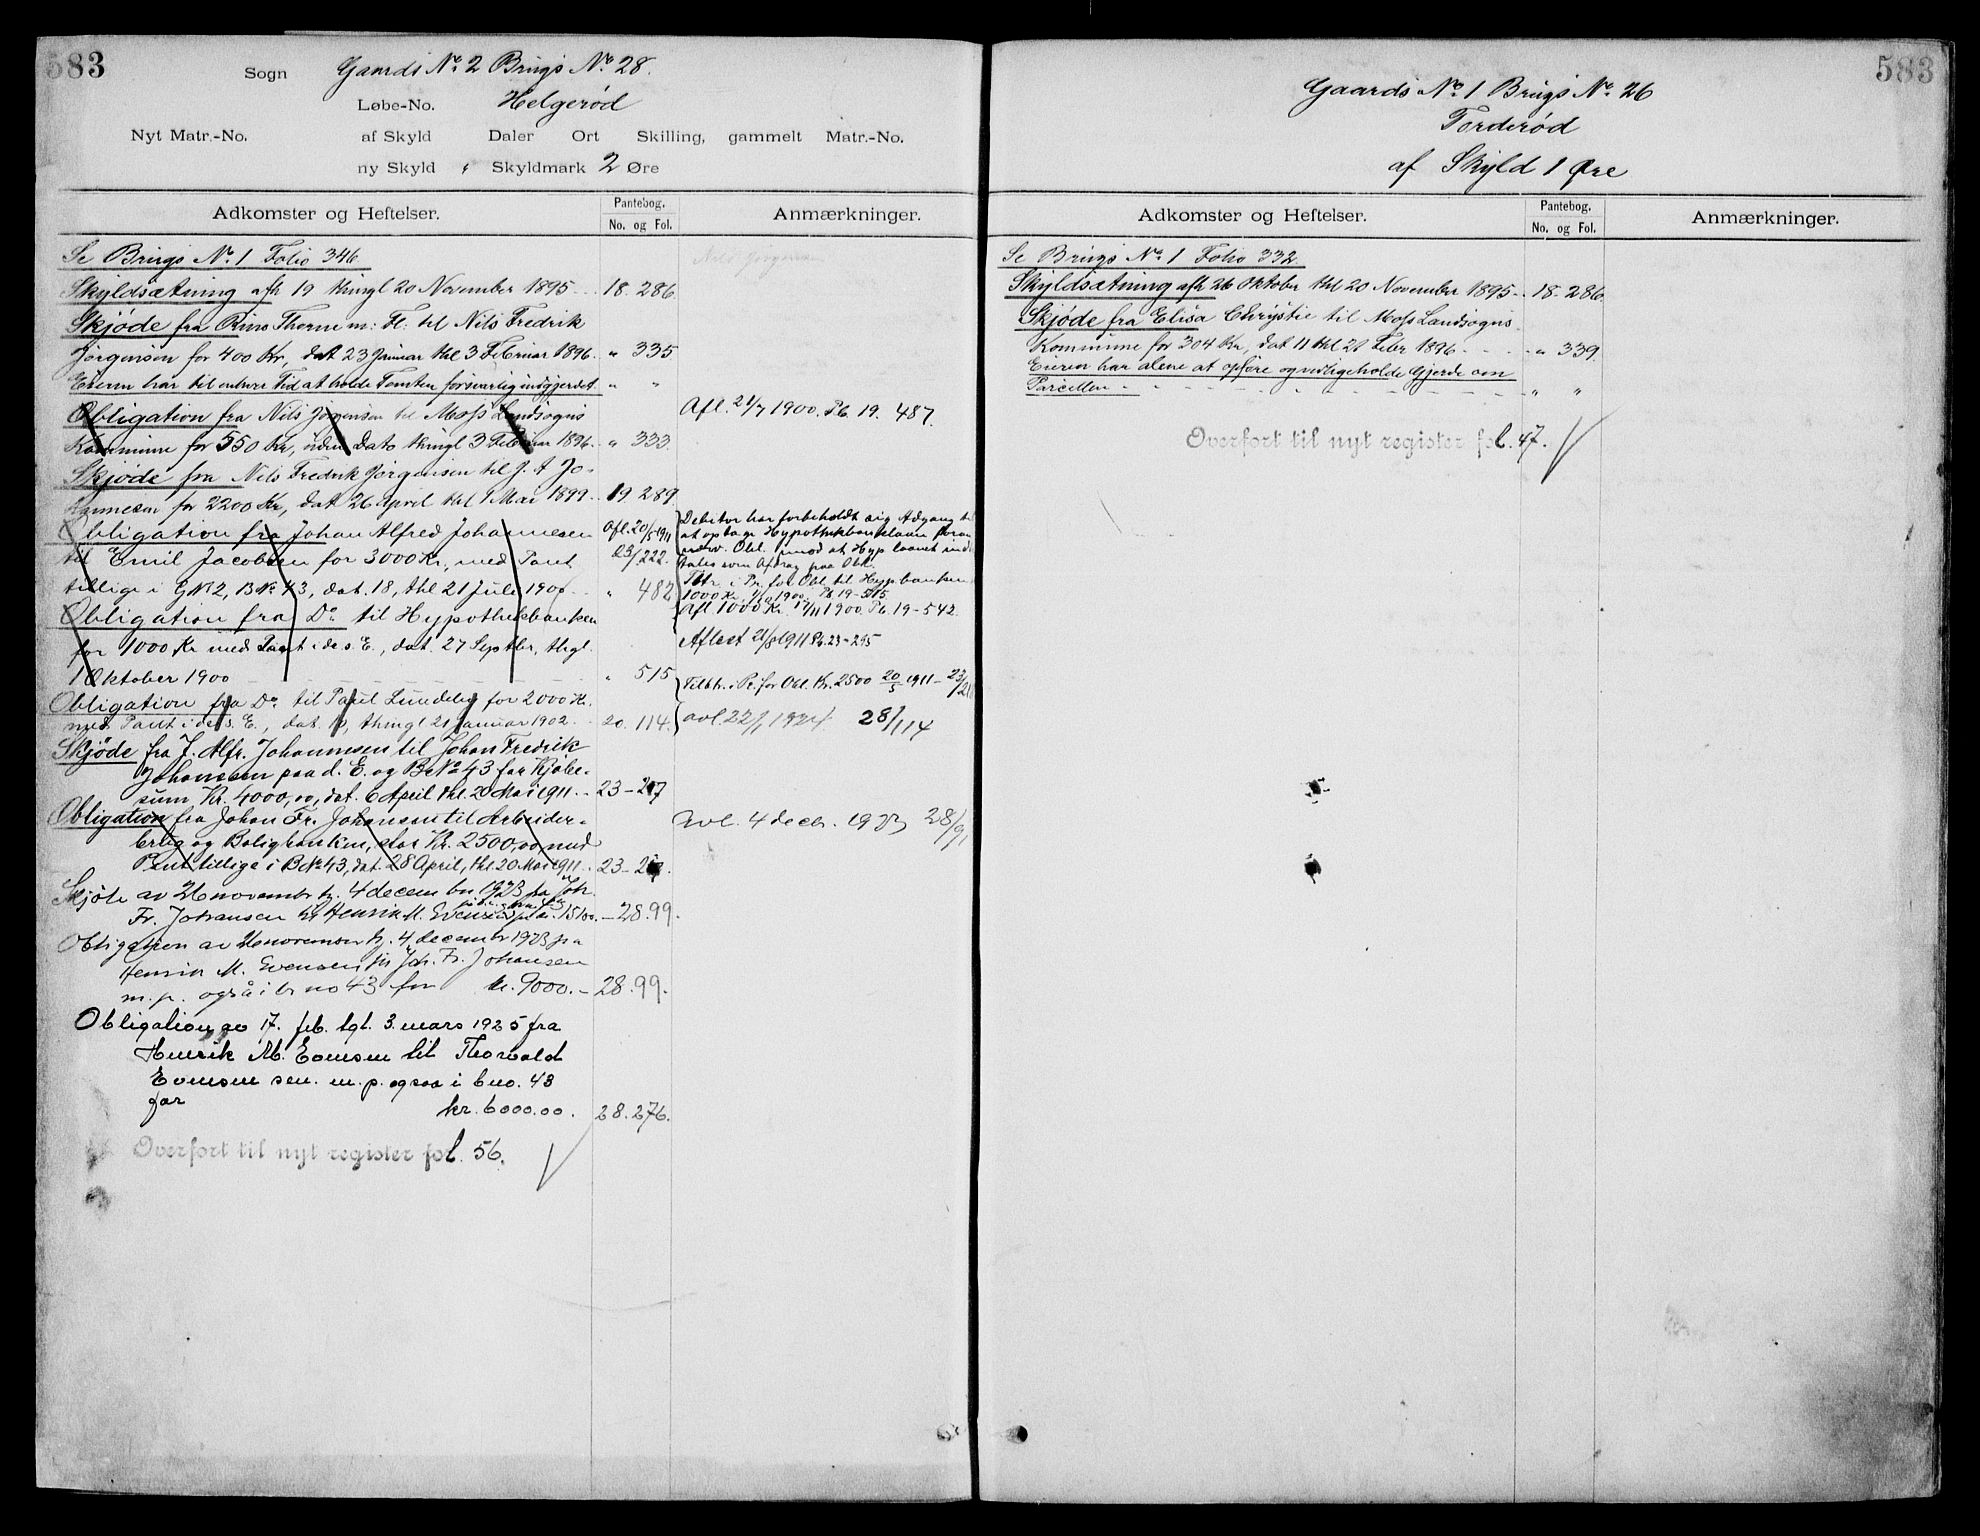 583
Sogn Gaards No. 2 Brugs No. 28.
Løbe-No. Helgerød
Nyt Matr.-No. af Skyld Daler Ort Skilling, gammelt Matr.-No.
ny Skyld " Skyldmark 2 Øre
Adkomster og Heftelser. Pantebog. No. og Fol. Anmærkninger.
Se Brugs No. 1 Folio 346
Skyldsætning afh 19 thingl 20 November 1895 18. 286
Skjøde fra Thorne m: Fl. til Nils Fredrik
Jørgensen for 400 Kr, dat 23 Januar thl 3 Februar 1896. " 335
Eieren har til enhver Tid at holde Tomten forsvarlig indgjerdet. " "
Obligation fra Nils Jørgensen til Moss Landsogns Afl. 21/7 1900. Pb. 19. 487.
Kommune for 550 Kr, uden Dato thingl 3 Februar 1896. " 333.
Skjøde fra Nils Fredrik Jørgensen til J. A Jo-
hannesen for 2200 Kr, dat 26 April thl 1 Mai 1899. 19. 289
Obligation fra Johan Alfred Johannesen Afl. 20/5 1911
til Emil Jacobsen for 3000 Kr, med Pant 23/222.
tillige i GN 2, BNo. 43, dat. 18, thl 21 Juli 1900 " 482
Debitor har forbeholdt sig Adgang til
at optage Hypothekbanklaan foran
nærv. Obl. mod at Hyp laanet ind-
tales som Afdrag paa Obl.
Tilbtr. i Pr. for Obl. til Hypbanken
1000 Kr. 1/10 1900. Pb. 19-515
Afl 1000 Kr. 17/11 1900. Pb. 19-542
Obligation fra Do. til Hypothekbanken
for 1000 Kr med Pant i ds. E., dat. 27 Septbr, thgl. Aflest 21/8 1911 Pb. 23-295
1 Oktober 1900 " 515
Obligation fra Do. til Paul Lundeby for 2000 Kr. Tilbtr. i Pr. for Obl. Kr. 2500 20/5 1911 - 23/21
med Pant i ds. E., dat. thingl 21 Januar 1902. 20. 114. avl. 22/1 1924 28/114
Skjøde fra J. Alfr. Johannesen til Johan Fredrik
Johansen paa d. E. og BNo 43 for Kjøbe-
sum Kr. 4000,00, dat. 6 April thl. 20 Mai 1911. 23-217
Obligation fra Johan Fr. Johansen til Arbeider- Avl. 4 decb. 1923 28/91
brug og Boligbanken, stor Kr. 2500,00, med
Pant tillige i BNo 43, dat. 28 April, thl. 20 Mai 1911. 23-217
Skjøte av 26 november tg. 4 december 1923 fra Joh.
Fr. Johansen til Henrik M. Evensen 15100.- 28.99.
Obligation av 26 november tg. 4 december 1923 fra
Henrik M. Evensen til Joh. Fr. Johansen
m. p. også i br no 43 for kr. 9000.- 28.99.
Obligation av 17. feb. tgl. 3. mars 1925 fra
Henrik M. Evensen til Thorvald
Evensen sen. m. p. ogsaa i bno. 43
for
kr. 6000.00. 28.276.
Overført til nyt register fol. 56.
583
Gaards No. 1 Brugs No. 26
Torderød
af Skyld 1 Øre
Adkomster og Heftelser. Pantebog. No. og Fol. Anmærkninger.
Se Brugs No. 1 Folio 332
Skyldsætning afh 26 Oktober thl 20 November 1895 18-286
Skjøde fra Elisa Christie til Moss Landsogns
Kommune for 304 Kr, dat 11 thl 21 Febr 1896 " 339.
Eieren har alene at opføre og vedligeholde Gjerde om
Parcellen " "
Overført til nyt register fol. 47.